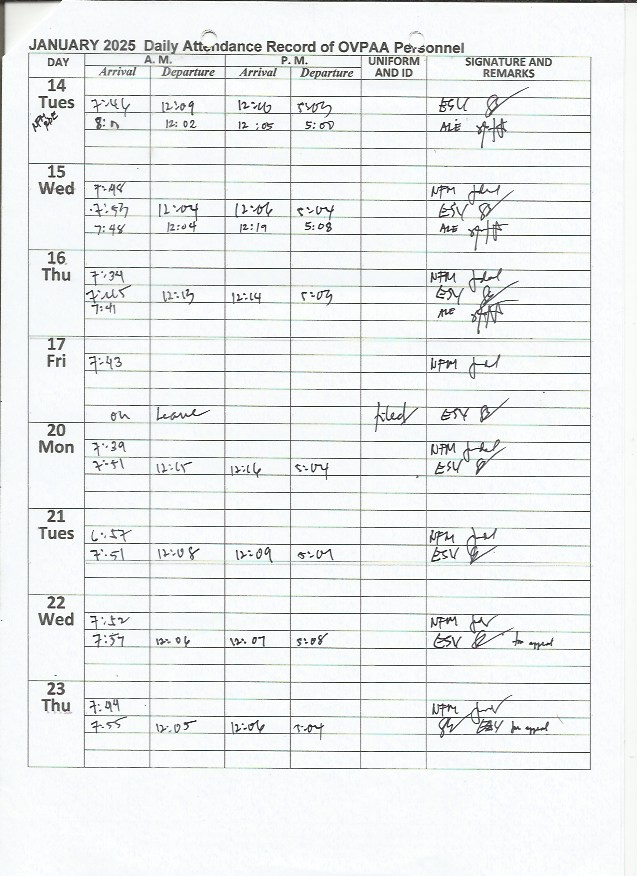 JANUARY 2025 Daily Attendance Record of OVPAA Personnel
DAY A. M. P. M. UNIFORM AND ID SIGNATURE AND REMARKS
Arrival Departure Arrival Departure
14 Tues
7:46 12:09 12:10 5:03 ESV
12:02 12:05 5:00 ALE
15 Wed
7:48 NFM
7:53 12:04 12:06 5:04 ESV
7:48 12:04 12:19 5:08 ALE
16 Thu
7:34 NFM
12:13 12:14 5:03 ESV
7:41 ALE
17 Fri
7:43 NFM
on Leave filed ESV
20 Mon
7:39 NFM
7:51 12:15 12:16 5:04 ESV
21 Tues
6:57 NFM
7:51 12:08 12:09 ESV
22 Wed
7:52 NFM
7:57 12:06 12:07 5:08 ESV for appeal
23 Thu
7:44 NFM
7:55 12:05 12:06 5:04 ESV for appeal